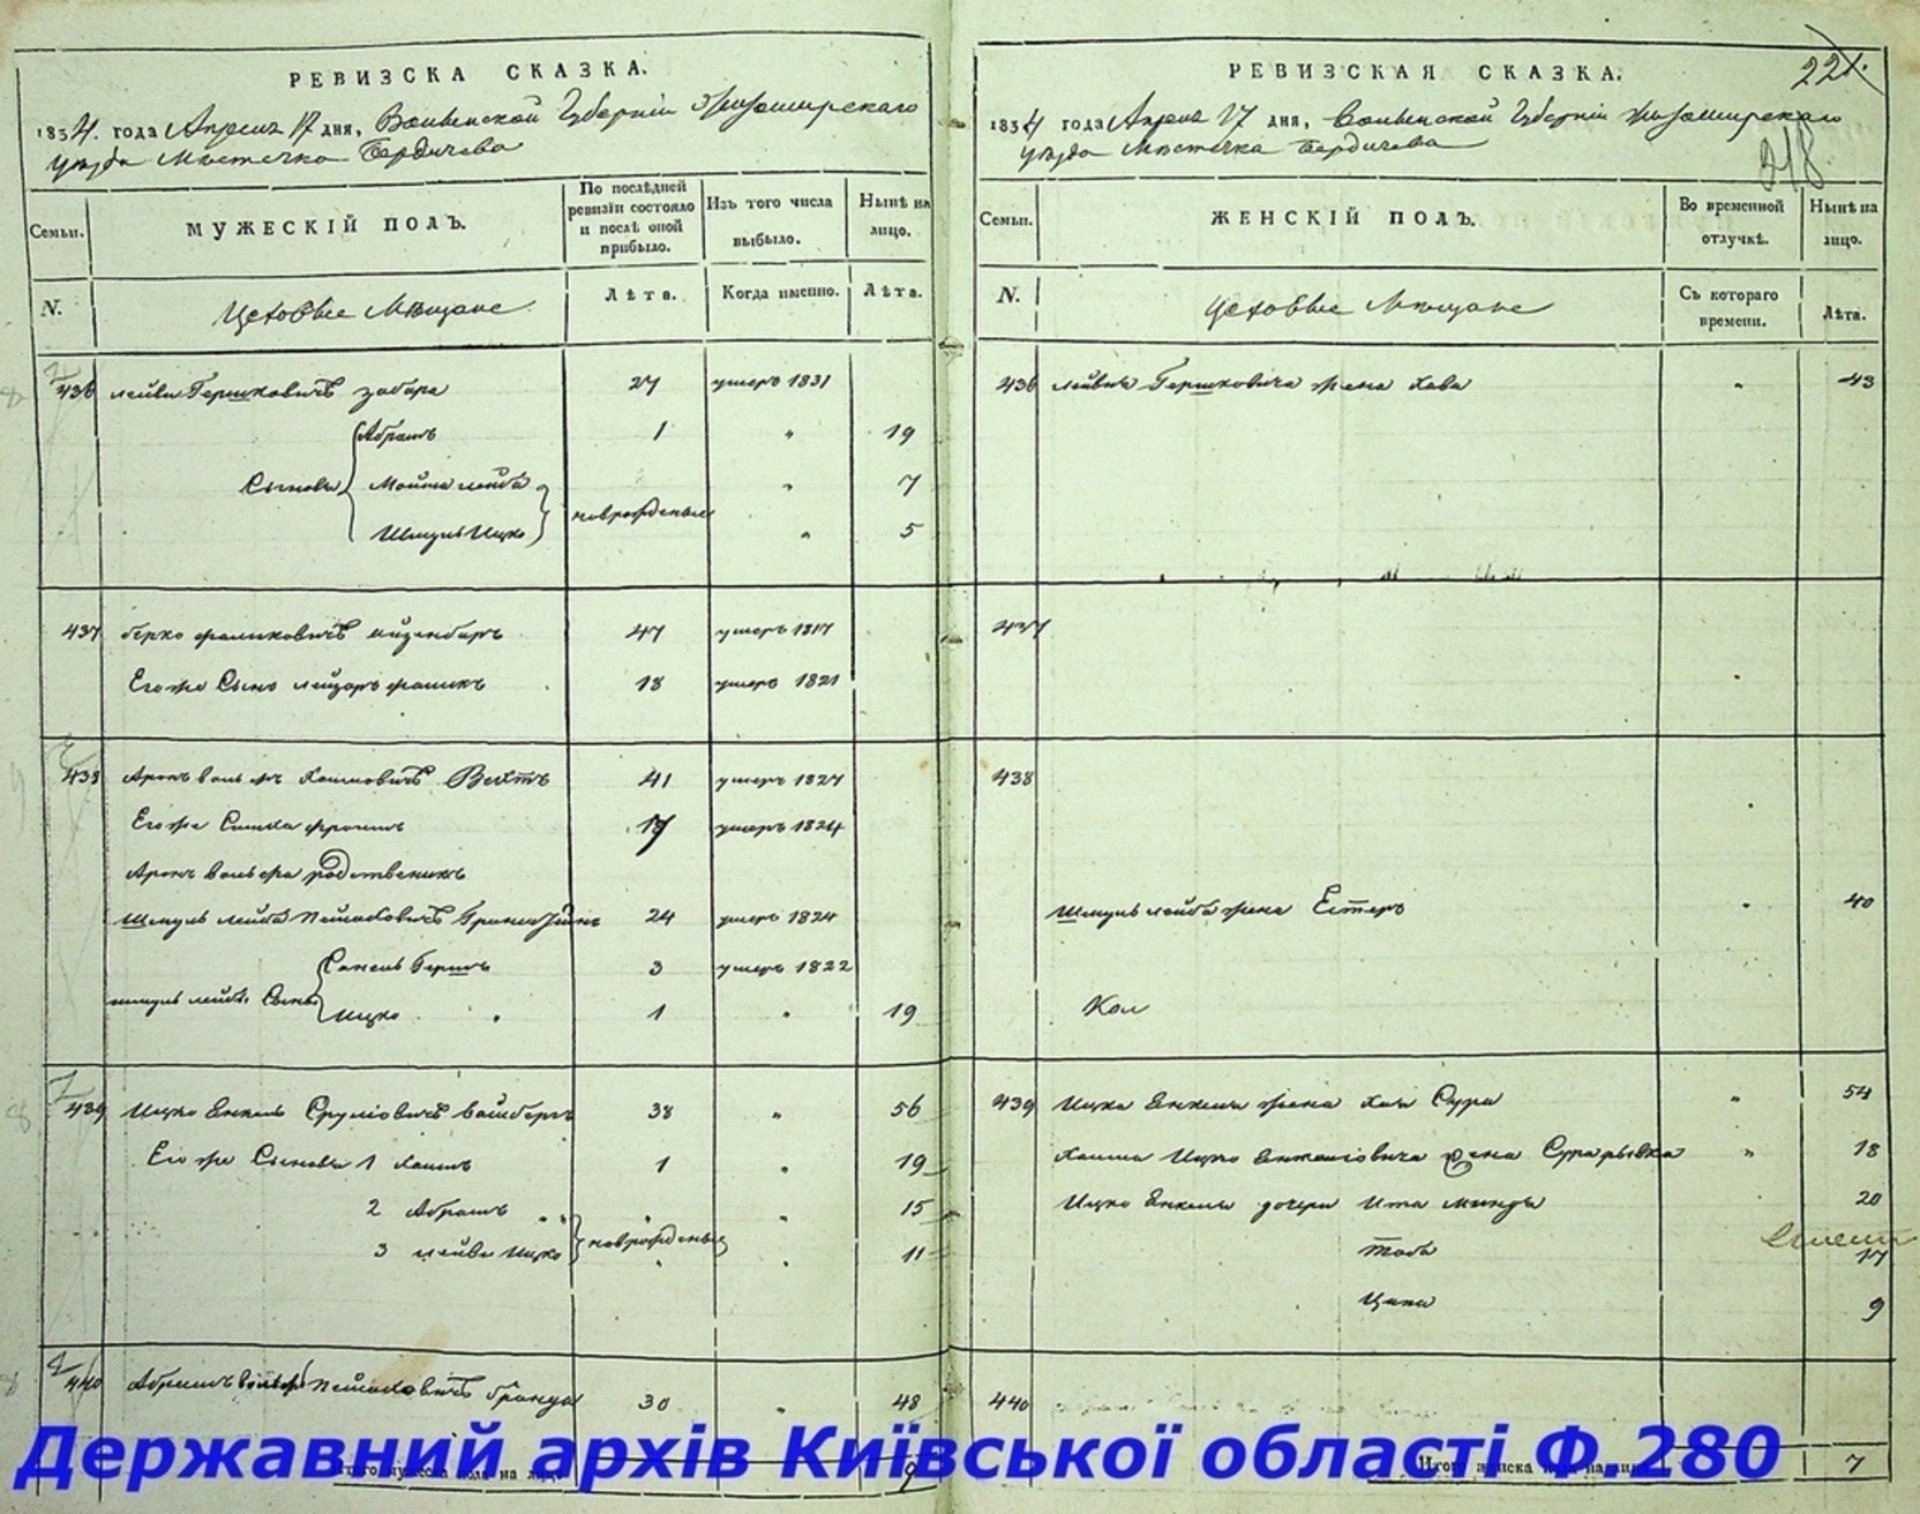 РЕВИЗСКА СКАЗКА.
1834. года Апреля 17 дня, Волынской Губерніи Житомирскаго
уезда Местечка Бердичева
Семьи.
МУЖЕСКІЙ ПОЛЪ.
По послѣдней ревизіи состояло и послѣ оной прибыло.
Изъ того числа выбыло.
Нынѣ на лицо.
N.
Цеховые Мещане
Лѣта.
Когда именно.
Лѣта.
436 Лейви Гершковичъ забара 27 умеръ 1831
Абрамъ 1 " 19
Сыновья Мошка лейба " 7
новорожденые
Шмуль Ицко " 5
437 Берко фамиковичъ 47 умеръ 1817
Егоже Сынъ лейзоръ 18 умеръ 1821
438 Аронъ вольфъ Хаимовичъ 41 умеръ 1827
Егоже Сынъ фроимъ 17 умеръ 1824
Аронъ вольфа родственикъ
Шмуль лейба Пейсаховичъ 24 умеръ 1824
Гершъ 3 умеръ 1822
шмуль лейб. Сынов.
Ицко 1 " 19
439 Ицко Янкель Сруліовичъ вайсберг 38 " 56
Егоже Сыновья 1 Хаимъ 1 " 19
2 Абрамъ " " 15
новорожденые
3 лейви Ицко " " 11
440 Абрамъ вольфъ Пейсаховичъ 30 " 48
Итого мужеска пола на лицо 9
РЕВИЗСКАЯ СКАЗКА.
221.
1834 года Апреля 17 дня, Волынской Губерніи Житомирскаго
218
уезда Местечка Бердичева
Семьи.
ЖЕНСКІЙ ПОЛЪ.
Во временной отлучкѣ.
Нынѣ на лицо.
N.
Цеховые Мещане
Съ котораго времени.
Лѣта.
436 Лейви Гершковича жена Хава " 43
437
438
Шмуль лейба жена Естеръ " 40
439 Ицка Янкеля жена Хая Сура " 54
Хаима Ицко Янкеліовича жена Сура рывка " 18
Ицко Янкеля дочери Ита Минды 20
Тоба 17
Ципа 9
440
Итого женска пола на лицо 7
Державний архів Київської області Ф.280